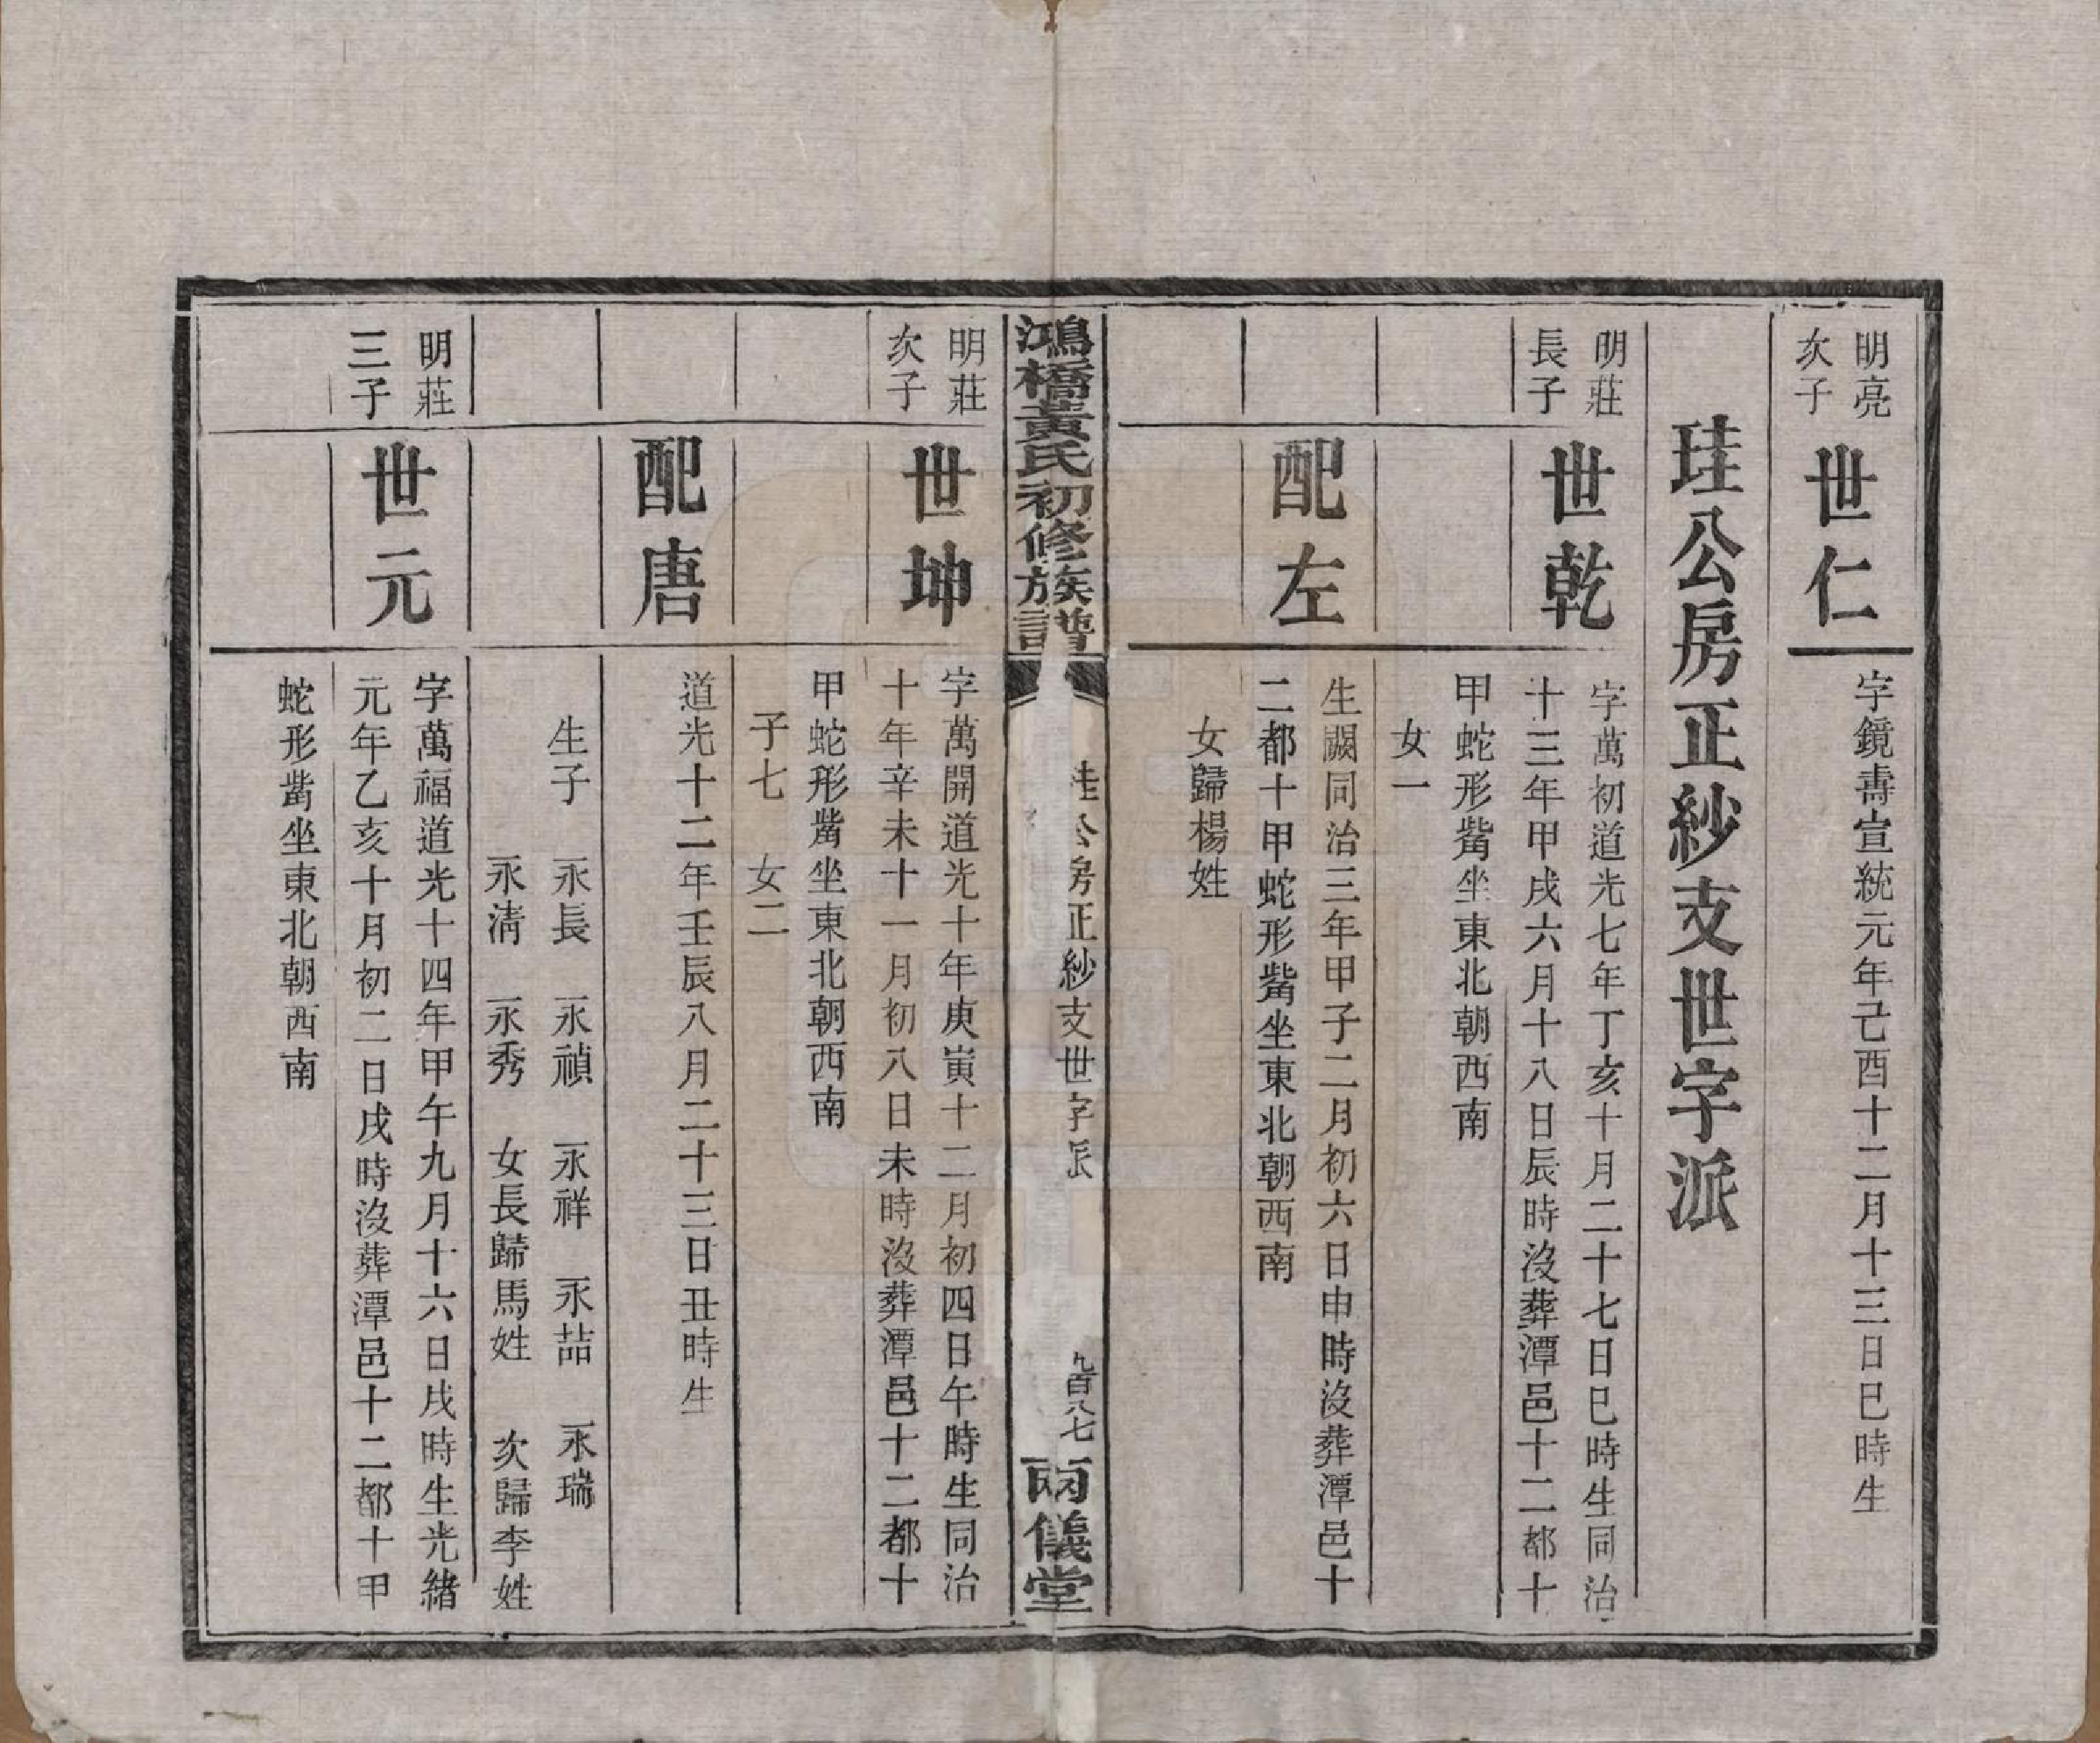 明亮
次子
世仁
字鏡壽宣統元年己酉十二月十三日巳時生
珪公房正紗支世字派
明莊
長子
世乾
字萬初道光七年丁亥十月二十七日巳時生同治
十三年甲戌六月十八日辰時沒葬潭邑十二都十
甲蛇形嵴坐東北朝西南
女一
配左
生闕同治三年甲子二月初六日申時沒葬潭邑十
二都十甲蛇形嵴坐東北朝西南
女歸楊姓
鴻橋黃氏初修族譜
珪公房正紗支世字派
九百八七
兩儀堂
明莊
次子
世坤
字萬開道光十年庚寅十二月初四日午時生同治
十年辛未十一月初八日未時沒葬潭邑十二都十
甲蛇形嵴坐東北朝西南
子七 女二
配唐
道光十二年壬辰八月二十三日丑時生
生子 永長 永禎 永祥 永喆 永瑞
永清 永秀 女長歸馬姓 次歸李姓
明莊
三子
世元
字萬福道光十四年甲午九月十六日戌時生光緒
元年乙亥十月初二日戌時沒葬潭邑十二都十甲
蛇形嵴坐東北朝西南